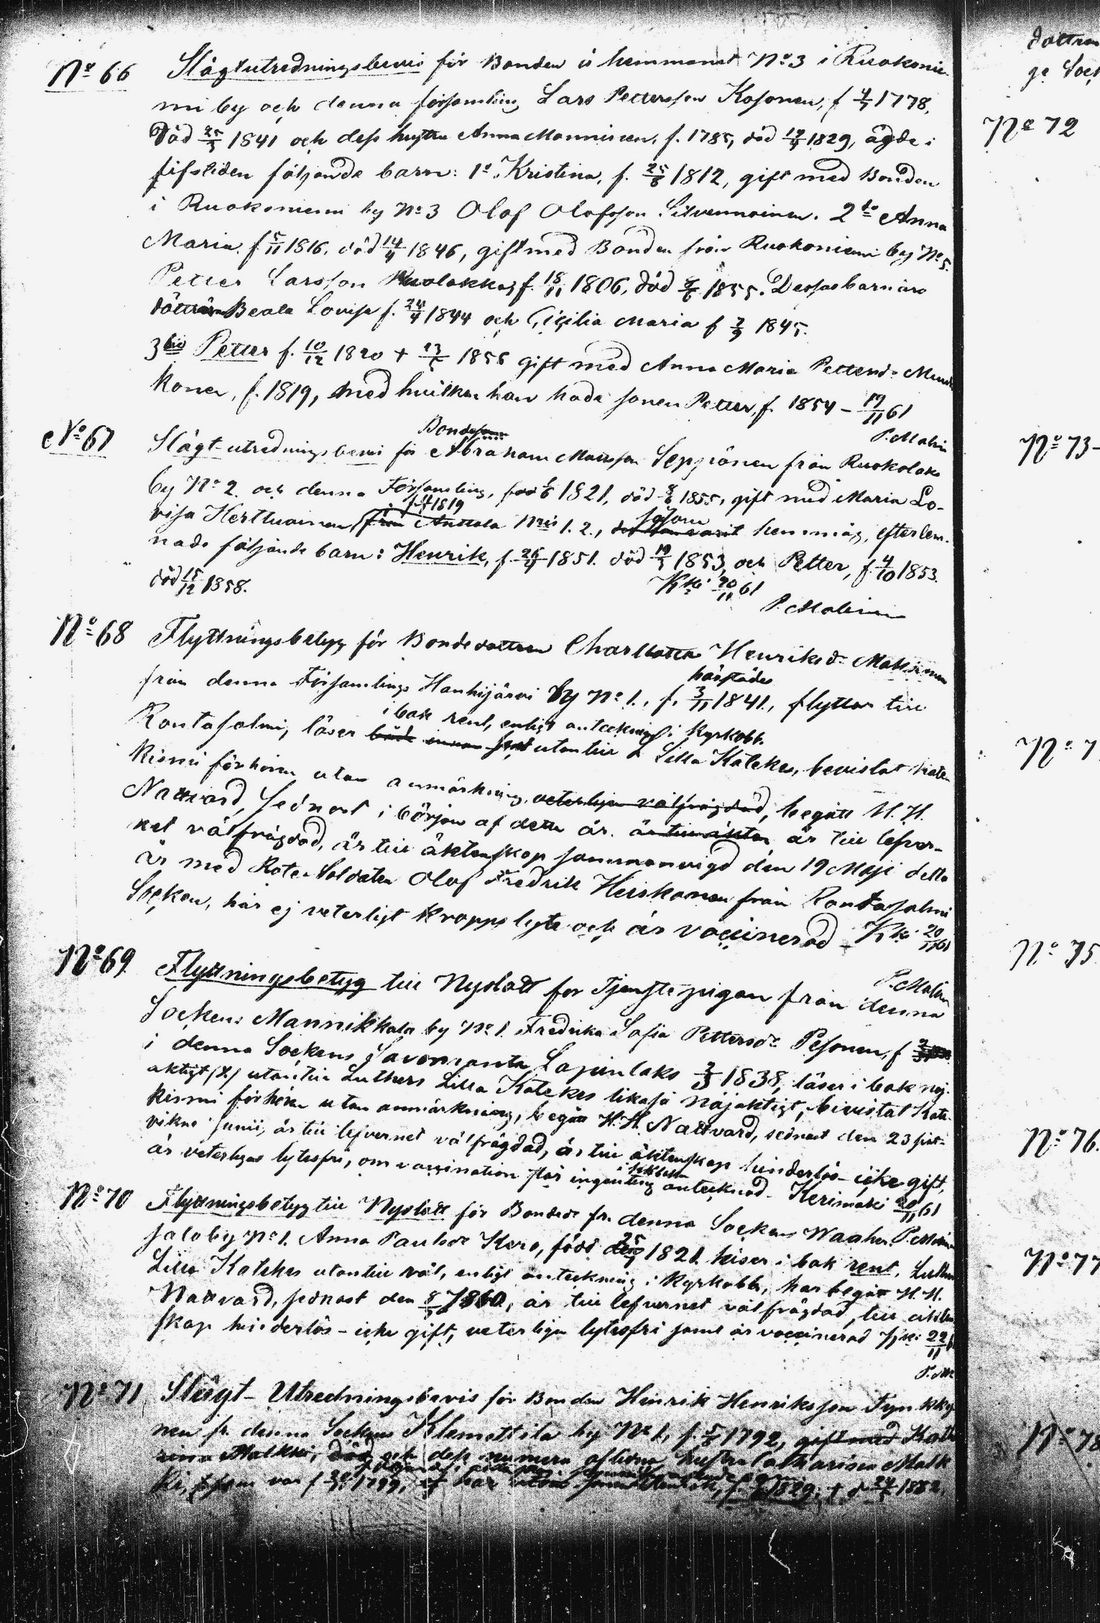 No 66 Slägtutredningsbevis för Bonden å hemmanet No 3 i Ruokonie-
mi by och denna församling Lars Pettersson Kosonen, f 1778,
Död 1841 och dess hustru Anna Monninen, f. 1785, död 1829, ägde i
lifstiden följande barn: 1o Kristina, f. 25/8 1812, gift med Bonden
i Ruokoniemi by No 3 Olof Olofsson Silvennoinen. 2do Anna
Maria f 5/11 1816, död 14/4 1846, gift med Bonden från Ruokoniemi by No 5.
Petter Larsson f. 18/11 1806, död 1855. Dessas barn äro
döttrarne Beata Lovisa f. 24/4 1844 och Cicilia Maria f 7/9 1845.
3tio Petter f. 10/12 1820 + 1856 gift med Anna Maria Pettersdr Mus-
konen, f. 1819, med hvilken han hade sonen Petter, f. 1854 - 17/11 61
P. Malin
No 67 Slägt-utredningsbevis för Bonden Abraham Matsson Seppänen från Ruokolaks
by No 2 och denna Församling, född 1821, död 1855, gift med Maria Lo-
visa Herttuainen, f. 1819 från Anttola No 1. 2., såsom hemmåg, efterlem-
nade följande barn: Henrik, f. 26/9 1851. död 19/3 1853, och Petter, f. 4/10 1853.
död 15/12 1858. Kki 20/11 61
P. Malin
No 68 Flyttningsbetyg för Bondedottren Charlotta Henriksdr Makkonen
från denna Församlings Hanhijärvi by No 1., f. härstädes 3/11 1841., flyttar till
Rantasalmi, läser i bok rent, enligt anteckning i Kyrkobb. utantill Lilla Katekes, bevistat Kate-
kismi förhören utan anmärkning, veterligen välfrägdad, begått H. H.
Nattvard, sednast i början af detta år. är till lefver-
net välfrägdad, är till äktenskap sammanvigd den 19 Maji detta
år med Rote Soldaten Olof Fredrik Heiskanen från Rantasalmi
Socken, har ej veterligt kroppslyte och är vaccinerad - Kki 20/11 61
P. Malin
No 69 Flyttningsbetyg till Nyslott för Tjenstepigan från denna
Sockens Mannikkala by No 1 Fredrika Sofia Pettersdr Pesonen, f
i denna Sockens Savonranta Lapinlaks 2/3 1838, läser i bok noj-
aktigt utantill Luthers Lilla Katekes likaså nojaktigt, bevistat Kate-
kismi förhören utan anmärkning, begått H. H. Nattvard, sednast den 23 sist-
vikne Junii, är till lefvernet välfrägdad, är till äktenskap hinderlös - icke gift,
är veterligen lytesfri, om vaccination har ingenting i boken antecknad. Kerimäki 20/11 61
P. Malin
No 70 Flyttningsbetyg till Nyslott för Bondedr fr. denna Sockens Waaher-
salo by No 1. Anna Paulsdr Kero, född 1821. läser i bok rent, Luthers
Lilla Katekes utantill väl, enligt anteckning i Kyrkobb, har begått H. H.
Nattvard, sednast den 1860, är till lefvernet välfrägdad, till äkten-
skap hinderlös - icke gift, veterligen lytesfri samt är vaccinerad Kki 22/11
P. M.
No 71 Slägt-Utredningsbevis för Bonden Hinrik Henriksson Tynkky-
nen fr. denna Sockens Klemettilä by No 1, f. 1792, gift med Katha-
rina Malkki, död och dess numera aflidna hustru Catharina Malk-
ki, som var f 1799, har 1829; + d 24/ 1852.
dottren
ge Sock
No 72
No 73-
No 7
No 75
No 76.
No 77
No 78